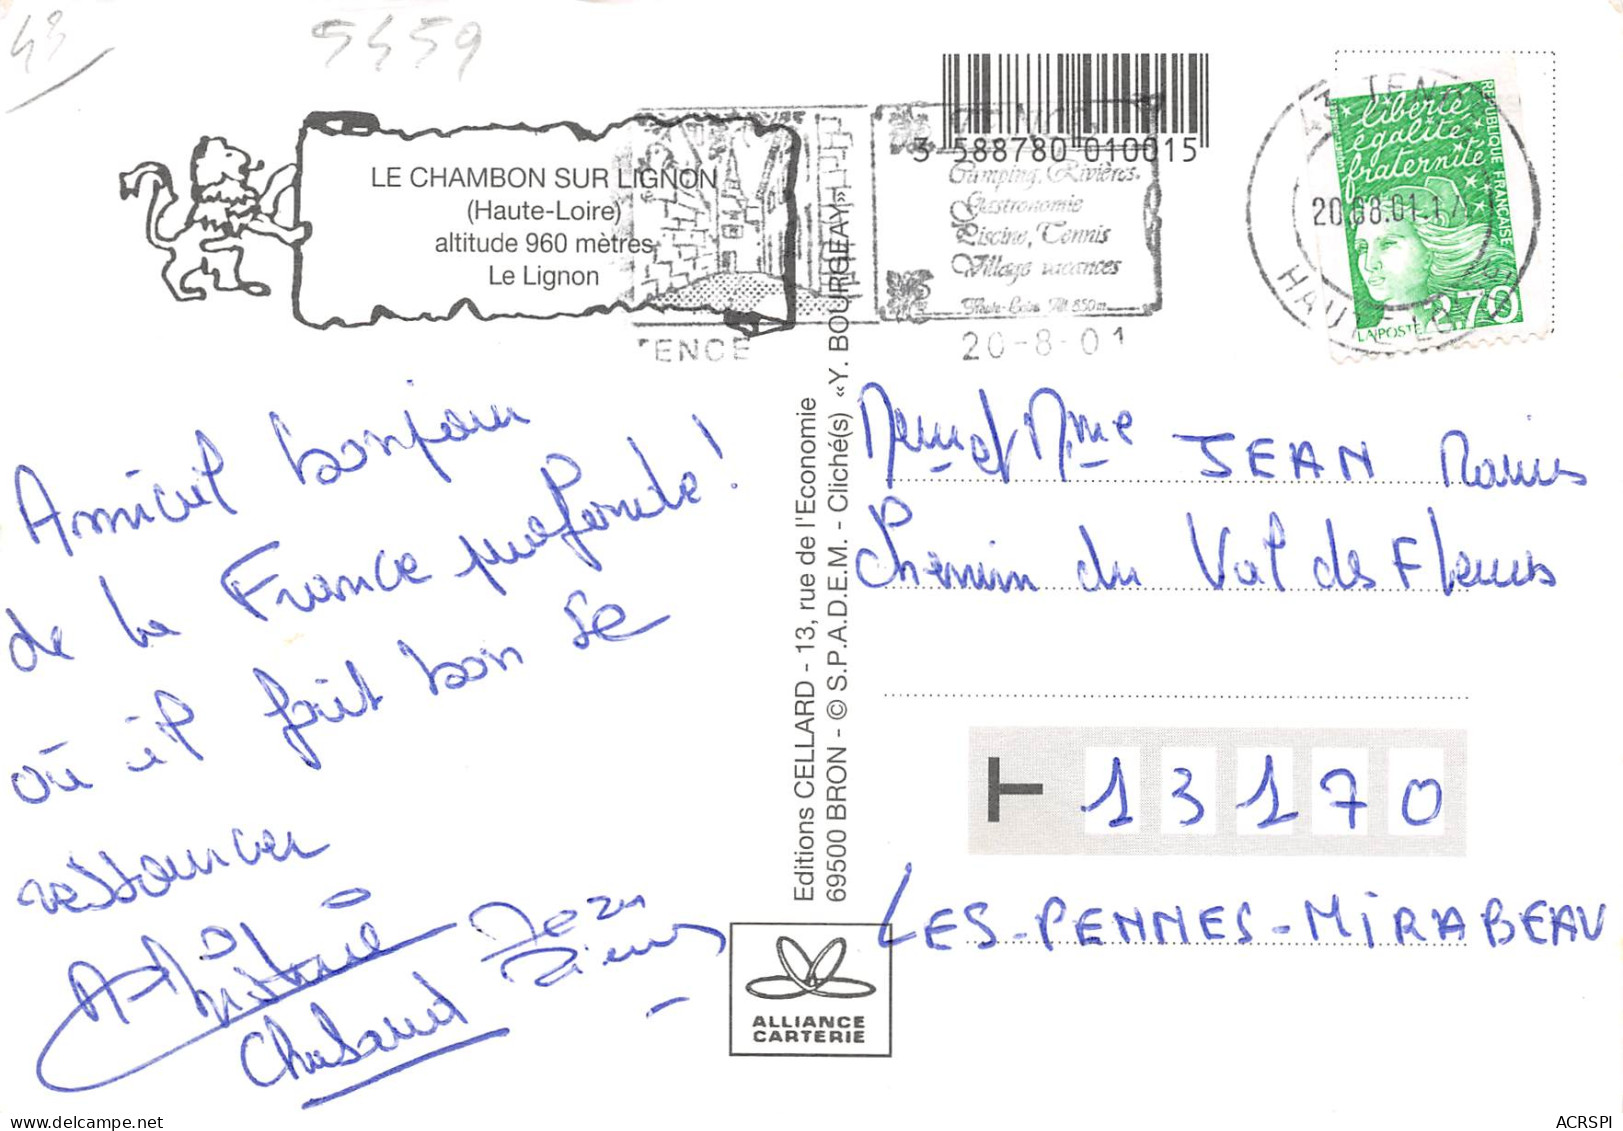 43
5459
LE CHAMBON SUR LIGNON
(Haute-Loire)
altitude 960 mètres
Le Lignon
TENCE
3 588780 010015
Camping, Rivières
Gastronomie
Piscine, Tennis
Village vacances
Haute-Loire Alt. 850 m
20-8-01
43 TENCE
20.08.01
HAUTE-LOIRE
liberté
égalité
fraternité
RÉPUBLIQUE FRANÇAISE
2,70
LA POSTE
Amical bonjour
de la France profonde !
où il fait bon se
ressourcer
Jean
Pierre
Chabaud
Editions CELLARD - 13, rue de l'Economie
69500 BRON - © S.P.A.D.E.M. - Cliché(s) «Y. BOURGEAY»
et Mme JEAN
Chemin du Val des Fleurs
13170
LES-PENNES-MIRABEAU
ALLIANCE
CARTERIE
delcampe.net
ACRSPI